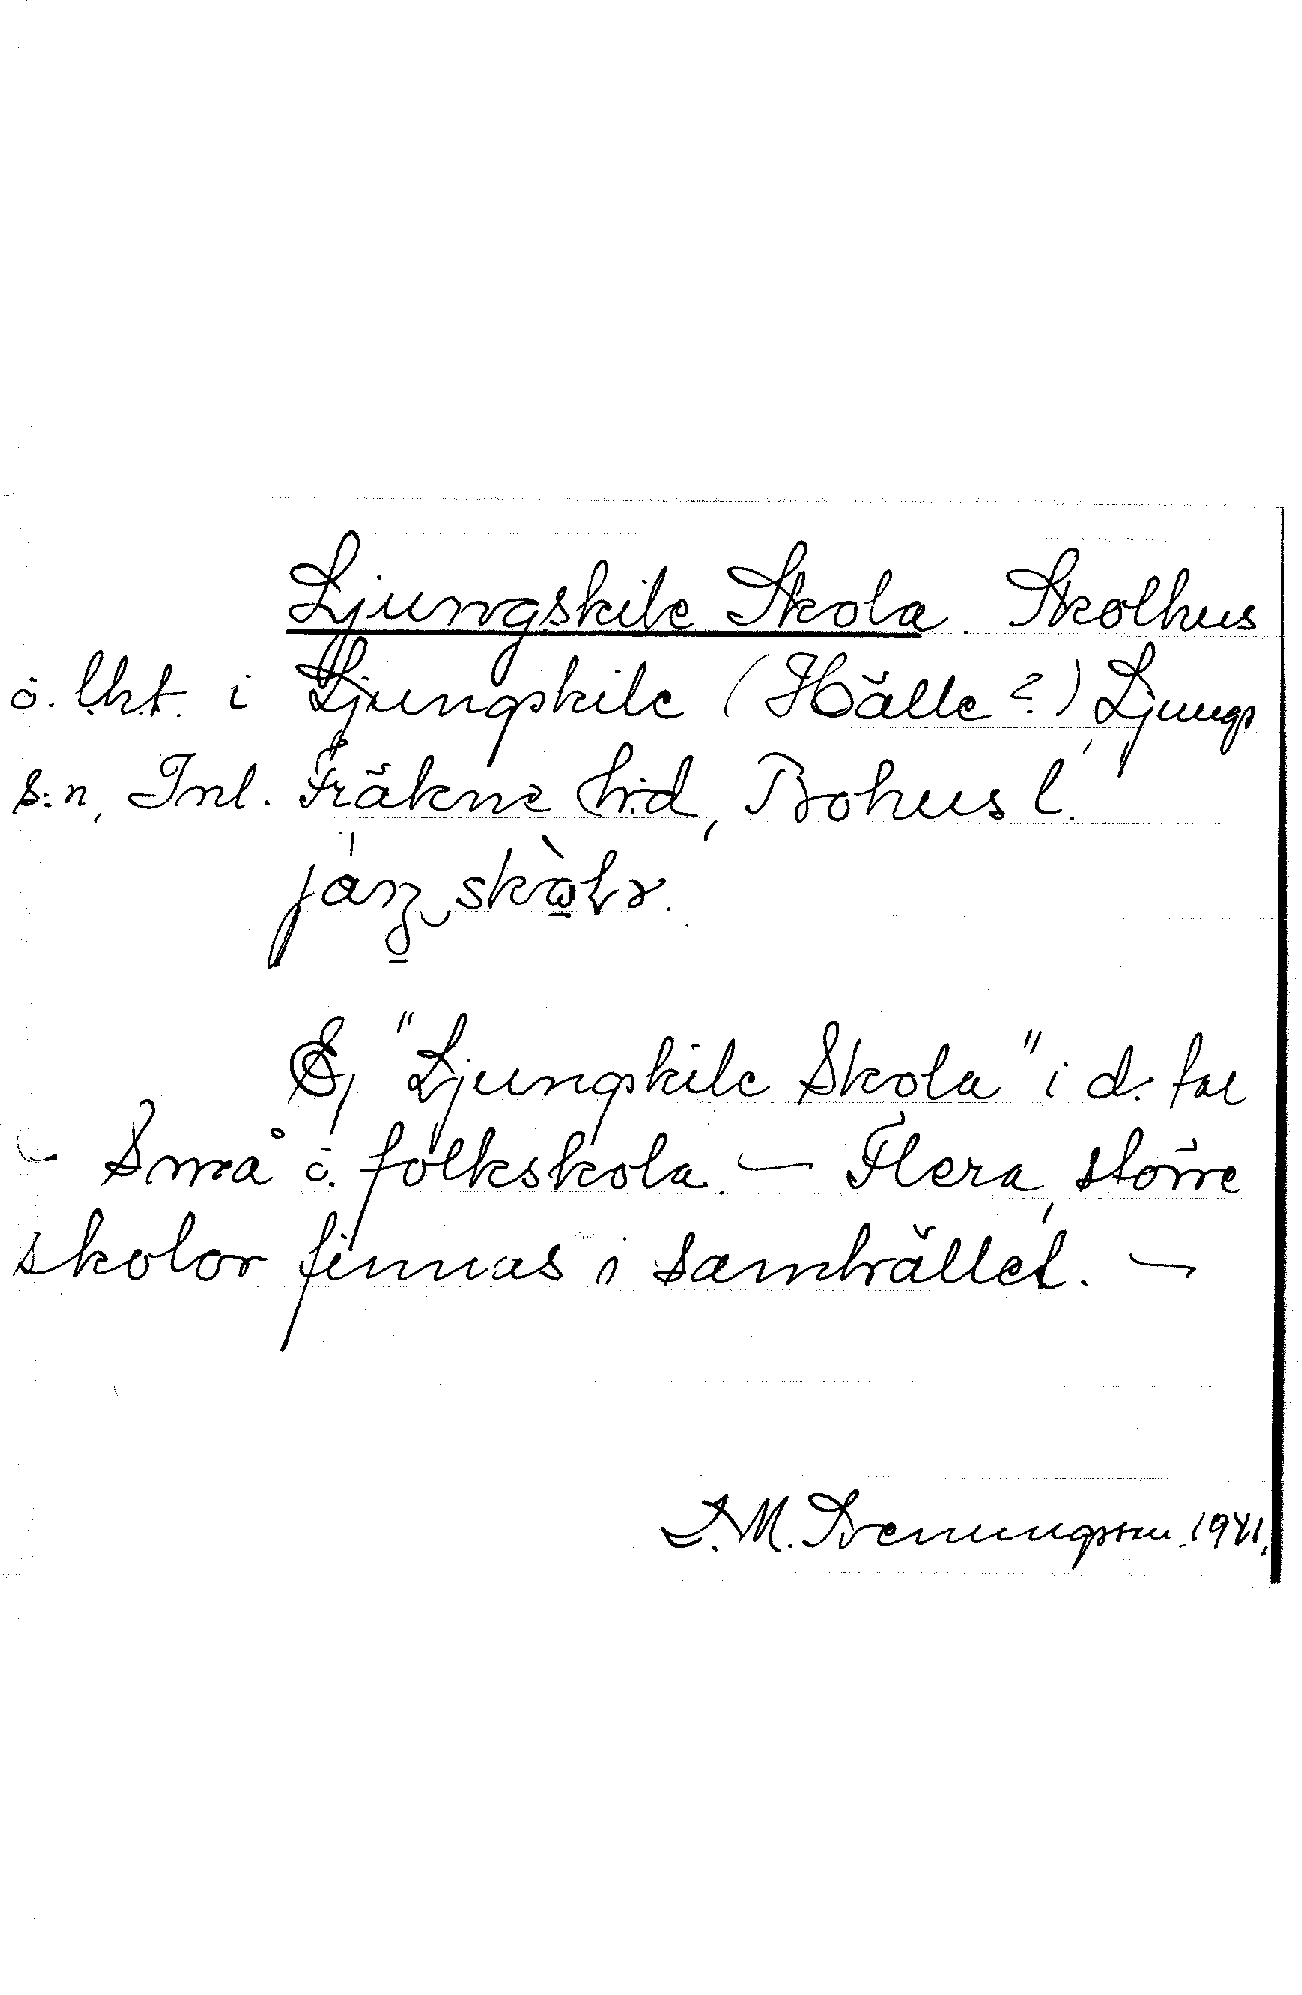 Ljungskile Skola. Skolhus
o. lht. i Ljungskile (Hälle?), Ljungs
s:n, Inl. Fräkne hd, Bohusl.
Ej "Ljungskile Skola" i d. tal
- Små o. folkskola. - Flera, större
skolor finnas i samhället. -
1941.